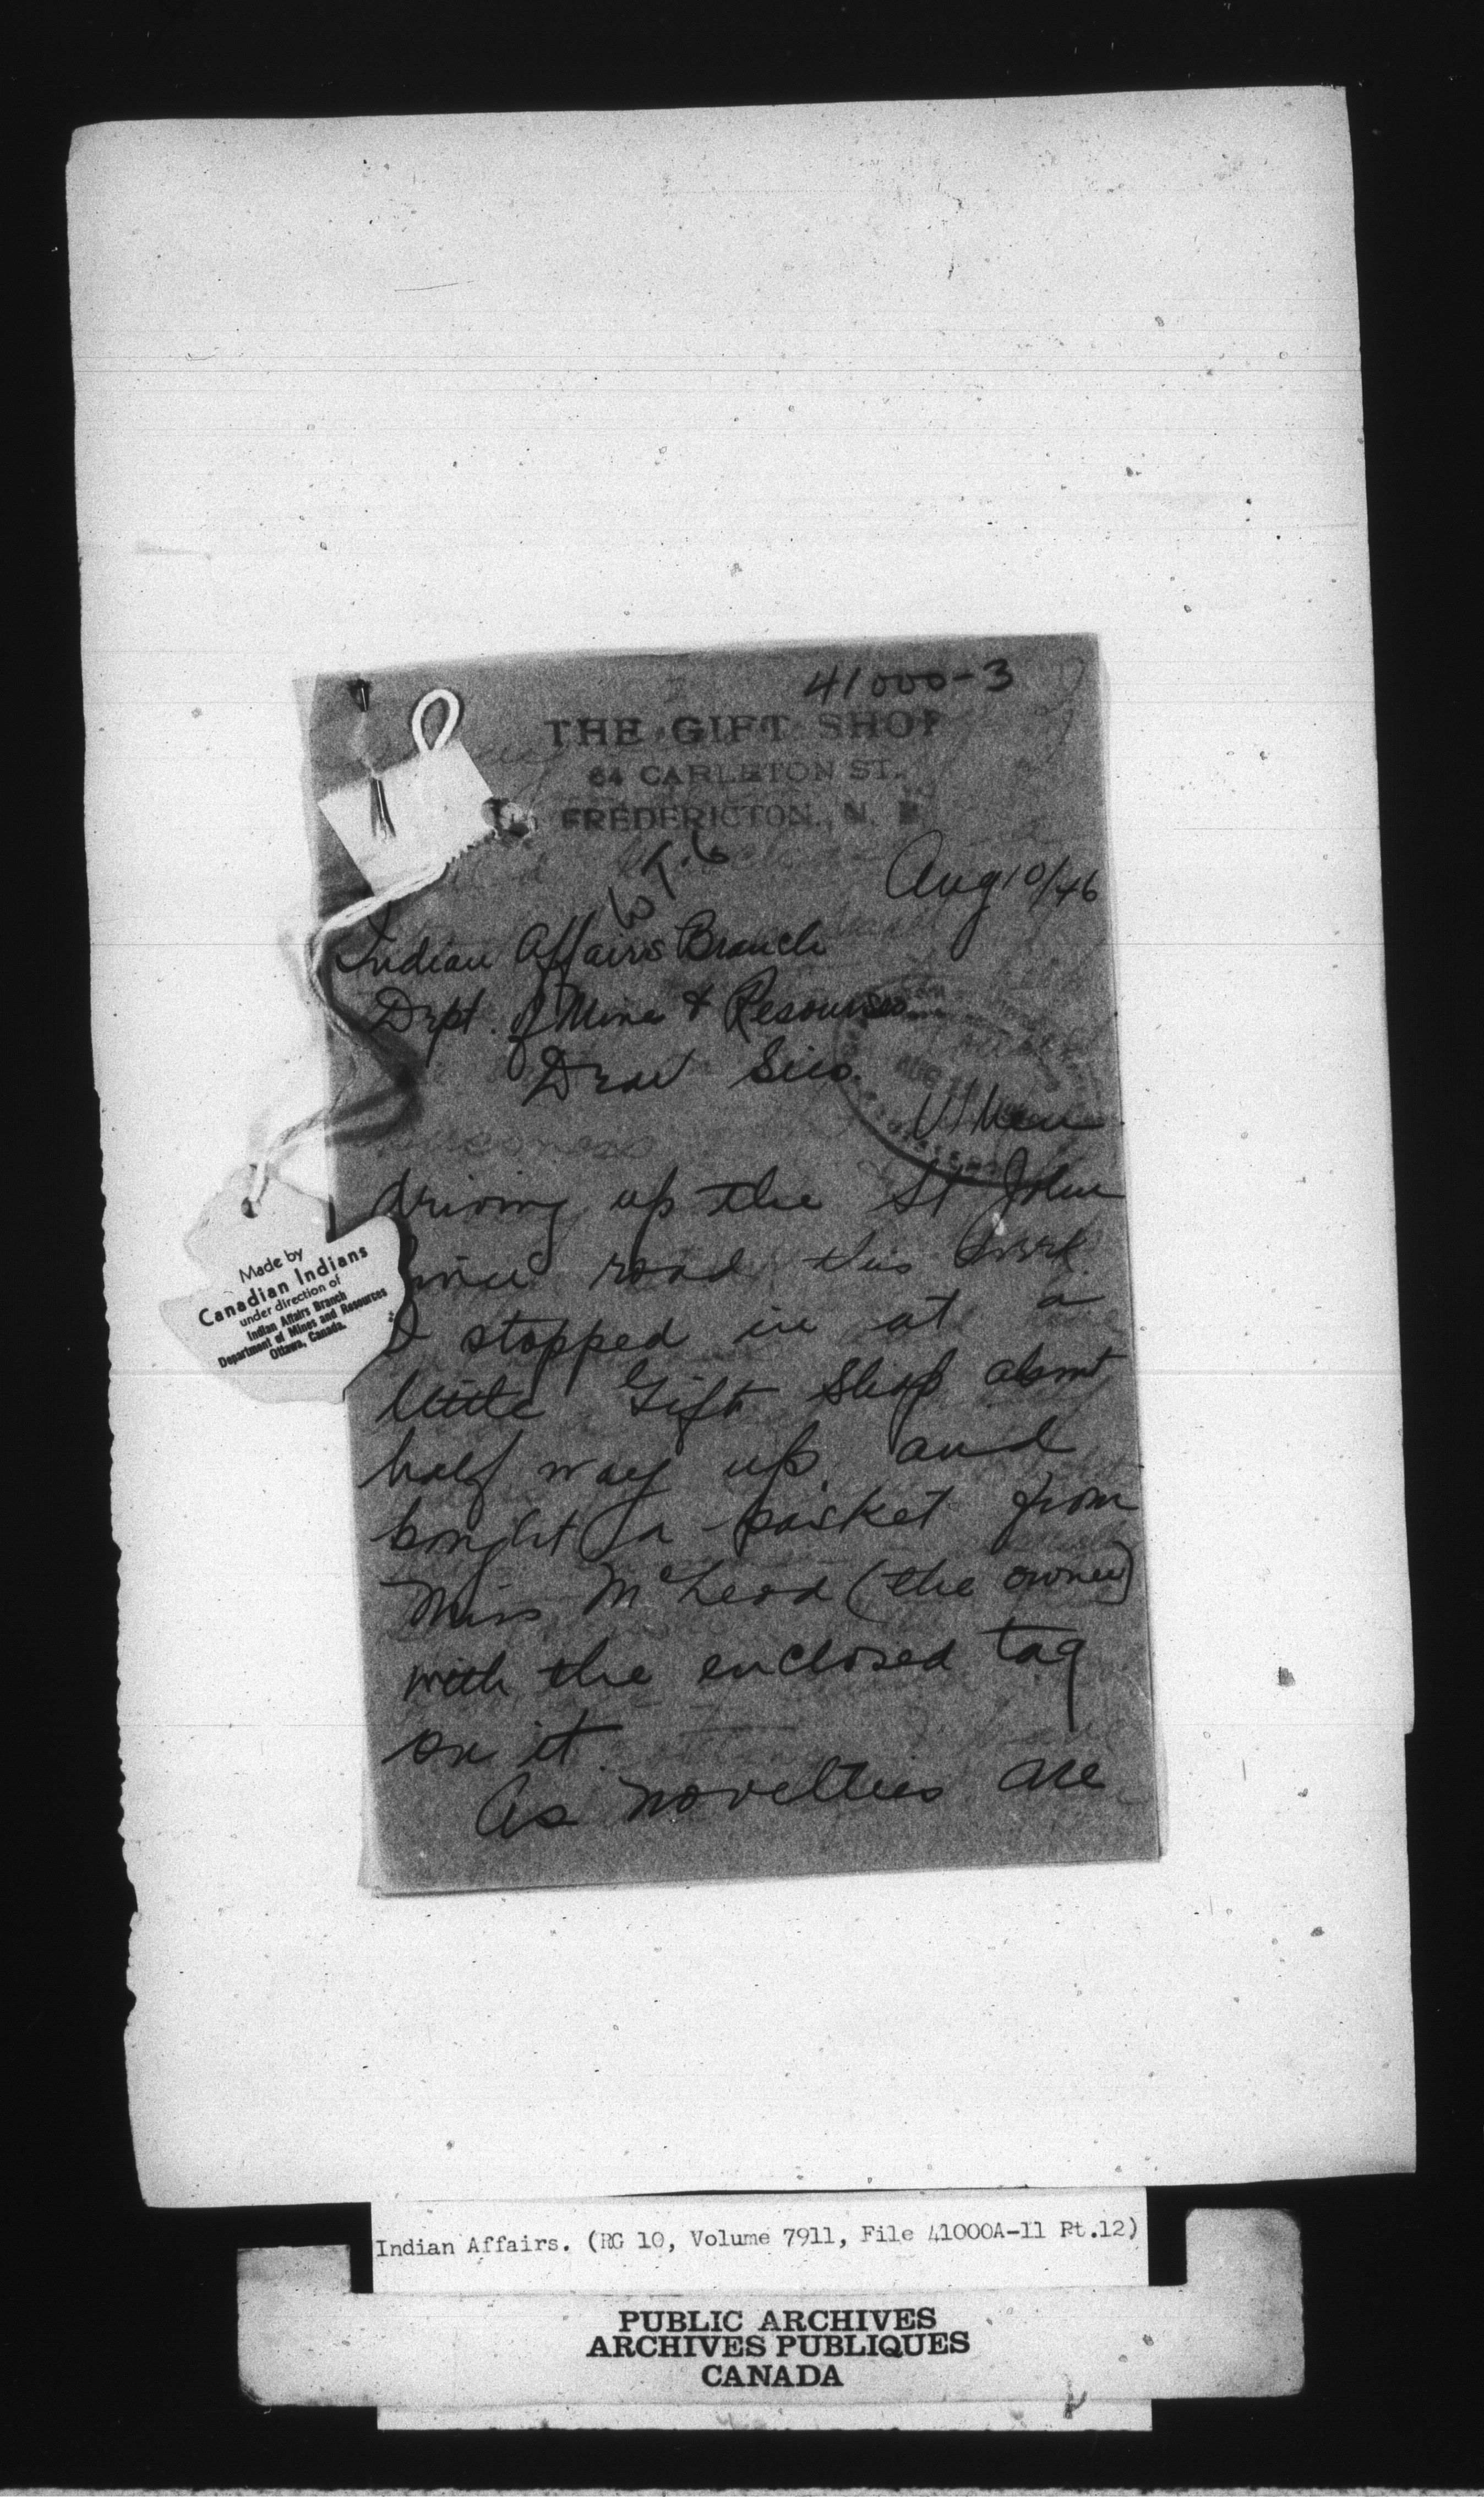 41000-3
THE GIFT SHOP
64 CARLETON ST.
FREDERICTON, N. B.
Aug 10/46
Indian Affairs Branch
Dept. of Mines & Resources
Dear Sirs.
When
driving up the St John
river road this week
I stopped in at a
little Gift Shop about
half way up and
bought a basket from
Miss McLeod (the owner)
with the enclosed tag
on it.
As novelties are
Made by
Canadian Indians
under direction of
Indian Affairs Branch
Department of Mines and Resources
Ottawa, Canada.
AUG
Indian Affairs. (RG 10, Volume 7911, File 41000A-11 Pt.12)
PUBLIC ARCHIVES
ARCHIVES PUBLIQUES
CANADA